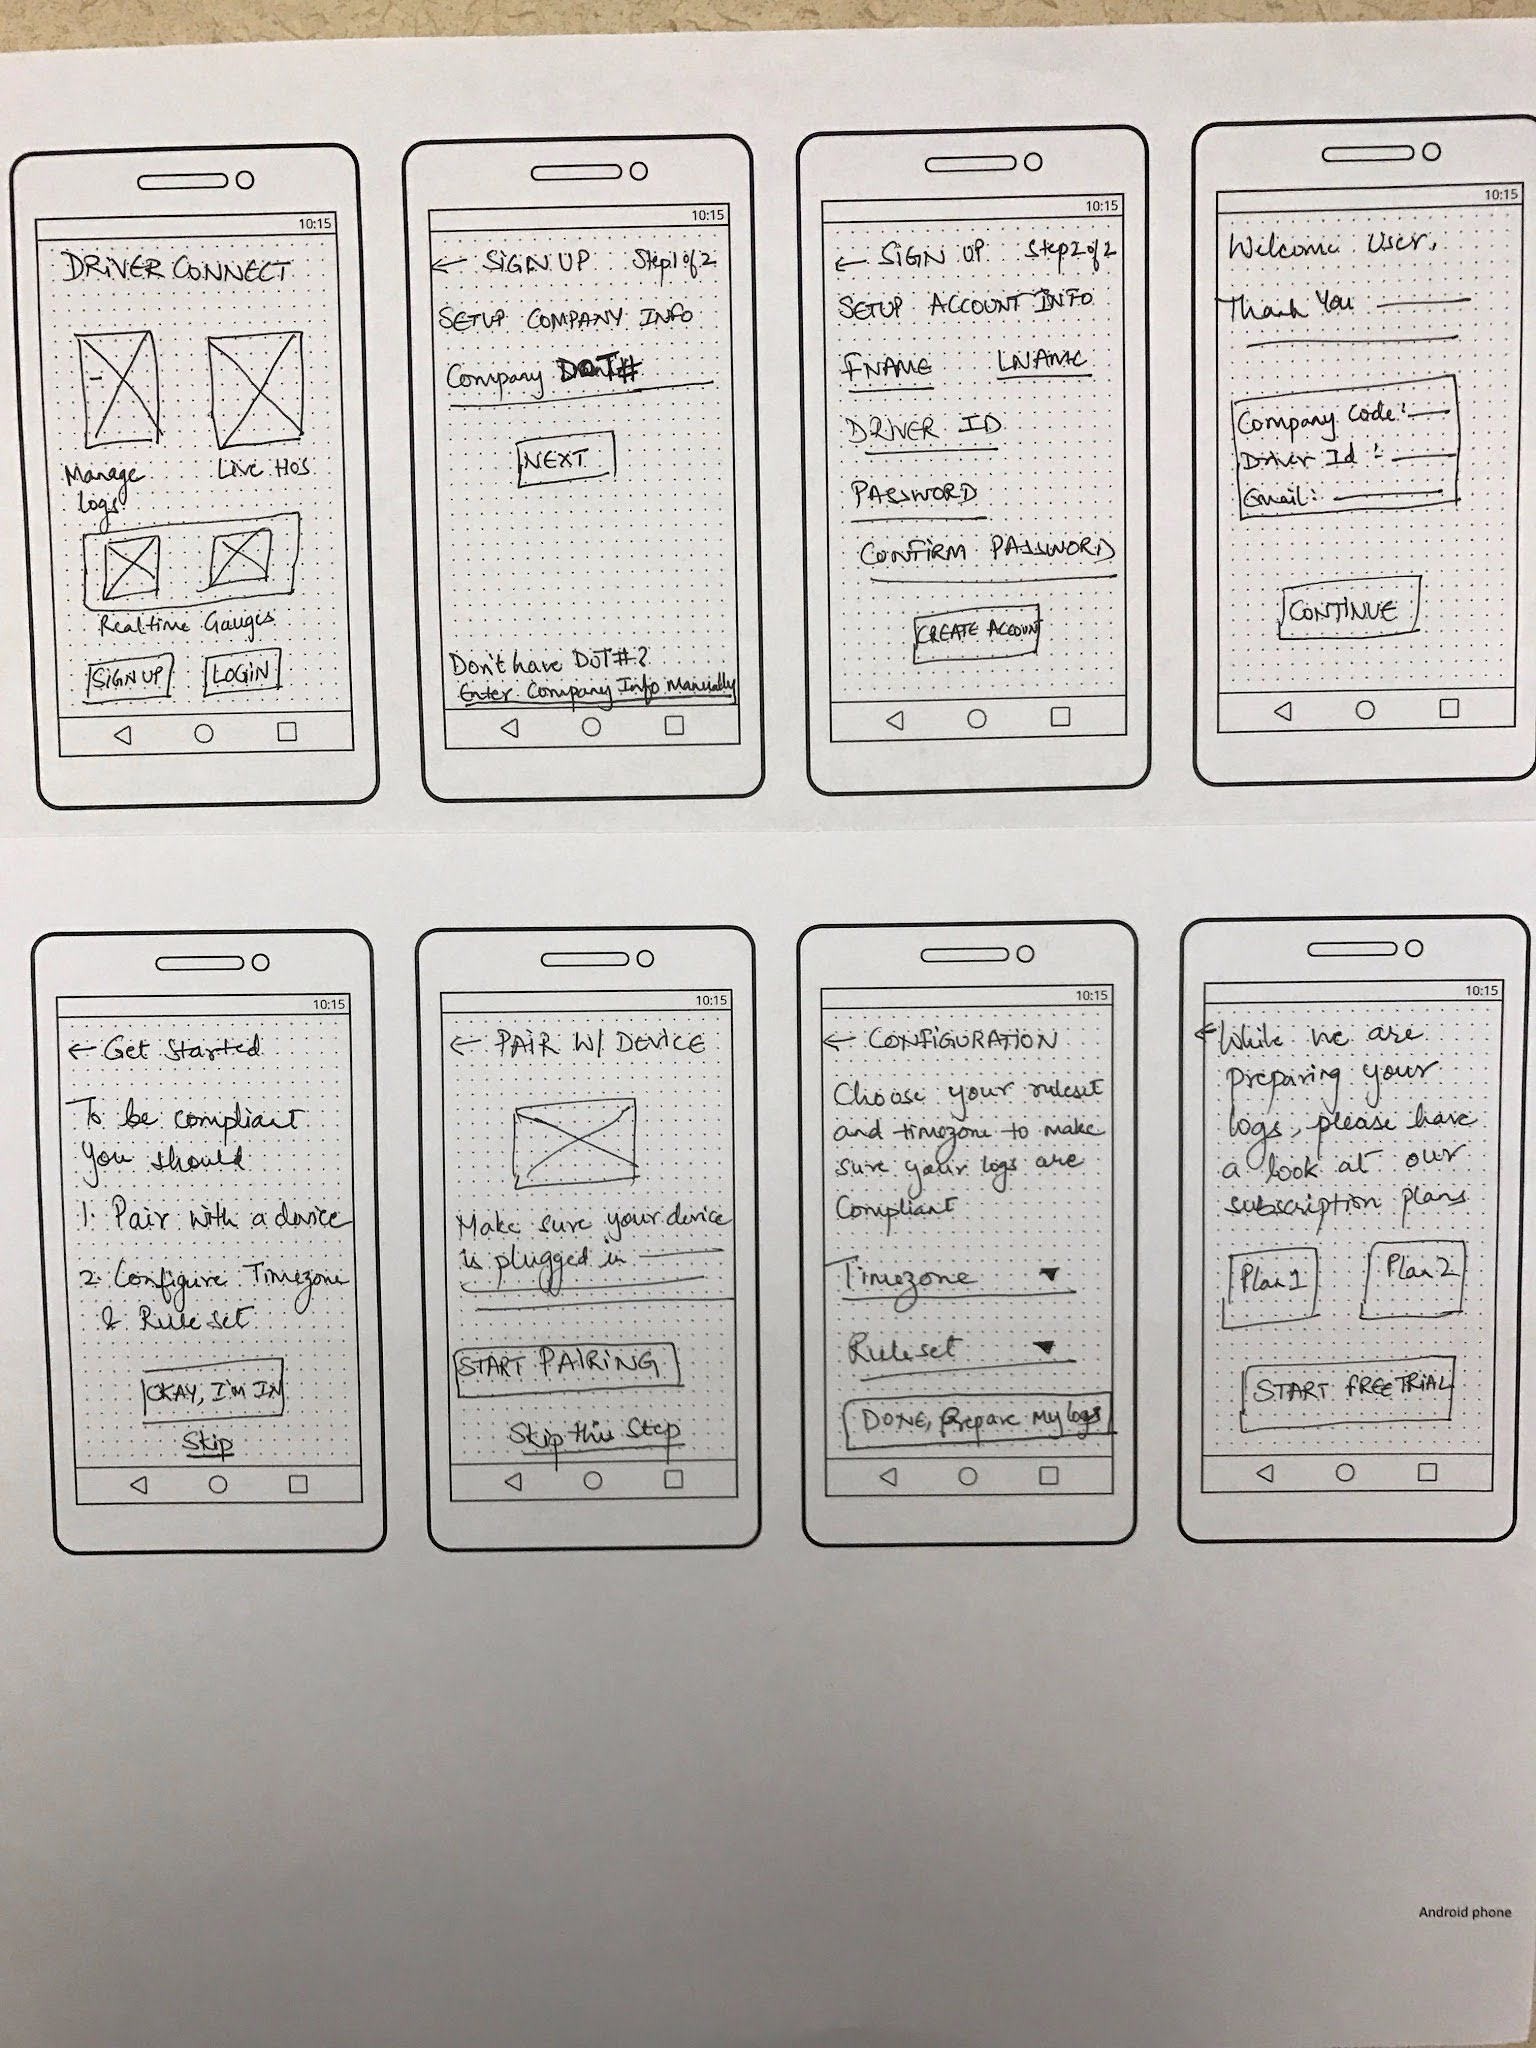 10:15
DRIVER CONNECT
Manage
Logs
Live HOS
Realtime Gauges
SIGN UP
LOGIN
10:15
← SIGN UP Step 1 of 2
SETUP COMPANY INFO
Company DOT#
NEXT
Don't have DOT#?
Enter Company Info Manually
10:15
← SIGN UP Step 2 of 2
SETUP ACCOUNT INFO
FNAME LNAME
DRIVER ID
PASSWORD
CONFIRM PASSWORD
CREATE ACCOUNT
10:15
Welcome User,
Thank You
Company Code:
Driver Id :
Email:
CONTINUE
10:15
← Get Started
To be compliant
you should
1. Pair with a device
2. Configure Timezone
& Rule set
OKAY, I'M IN
Skip
10:15
← PAIR W/ DEVICE
Make sure your device
is plugged in
START PAIRING
Skip this Step
10:15
← CONFIGURATION
Choose your ruleset
and timezone to make
sure your logs are
Compliant
Timezone
Ruleset
DONE, Prepare My logs
10:15
← While we are
preparing your
logs, please have
a look at our
subscription plans
Plan 1
Plan 2
START FREE TRIAL
Android phone